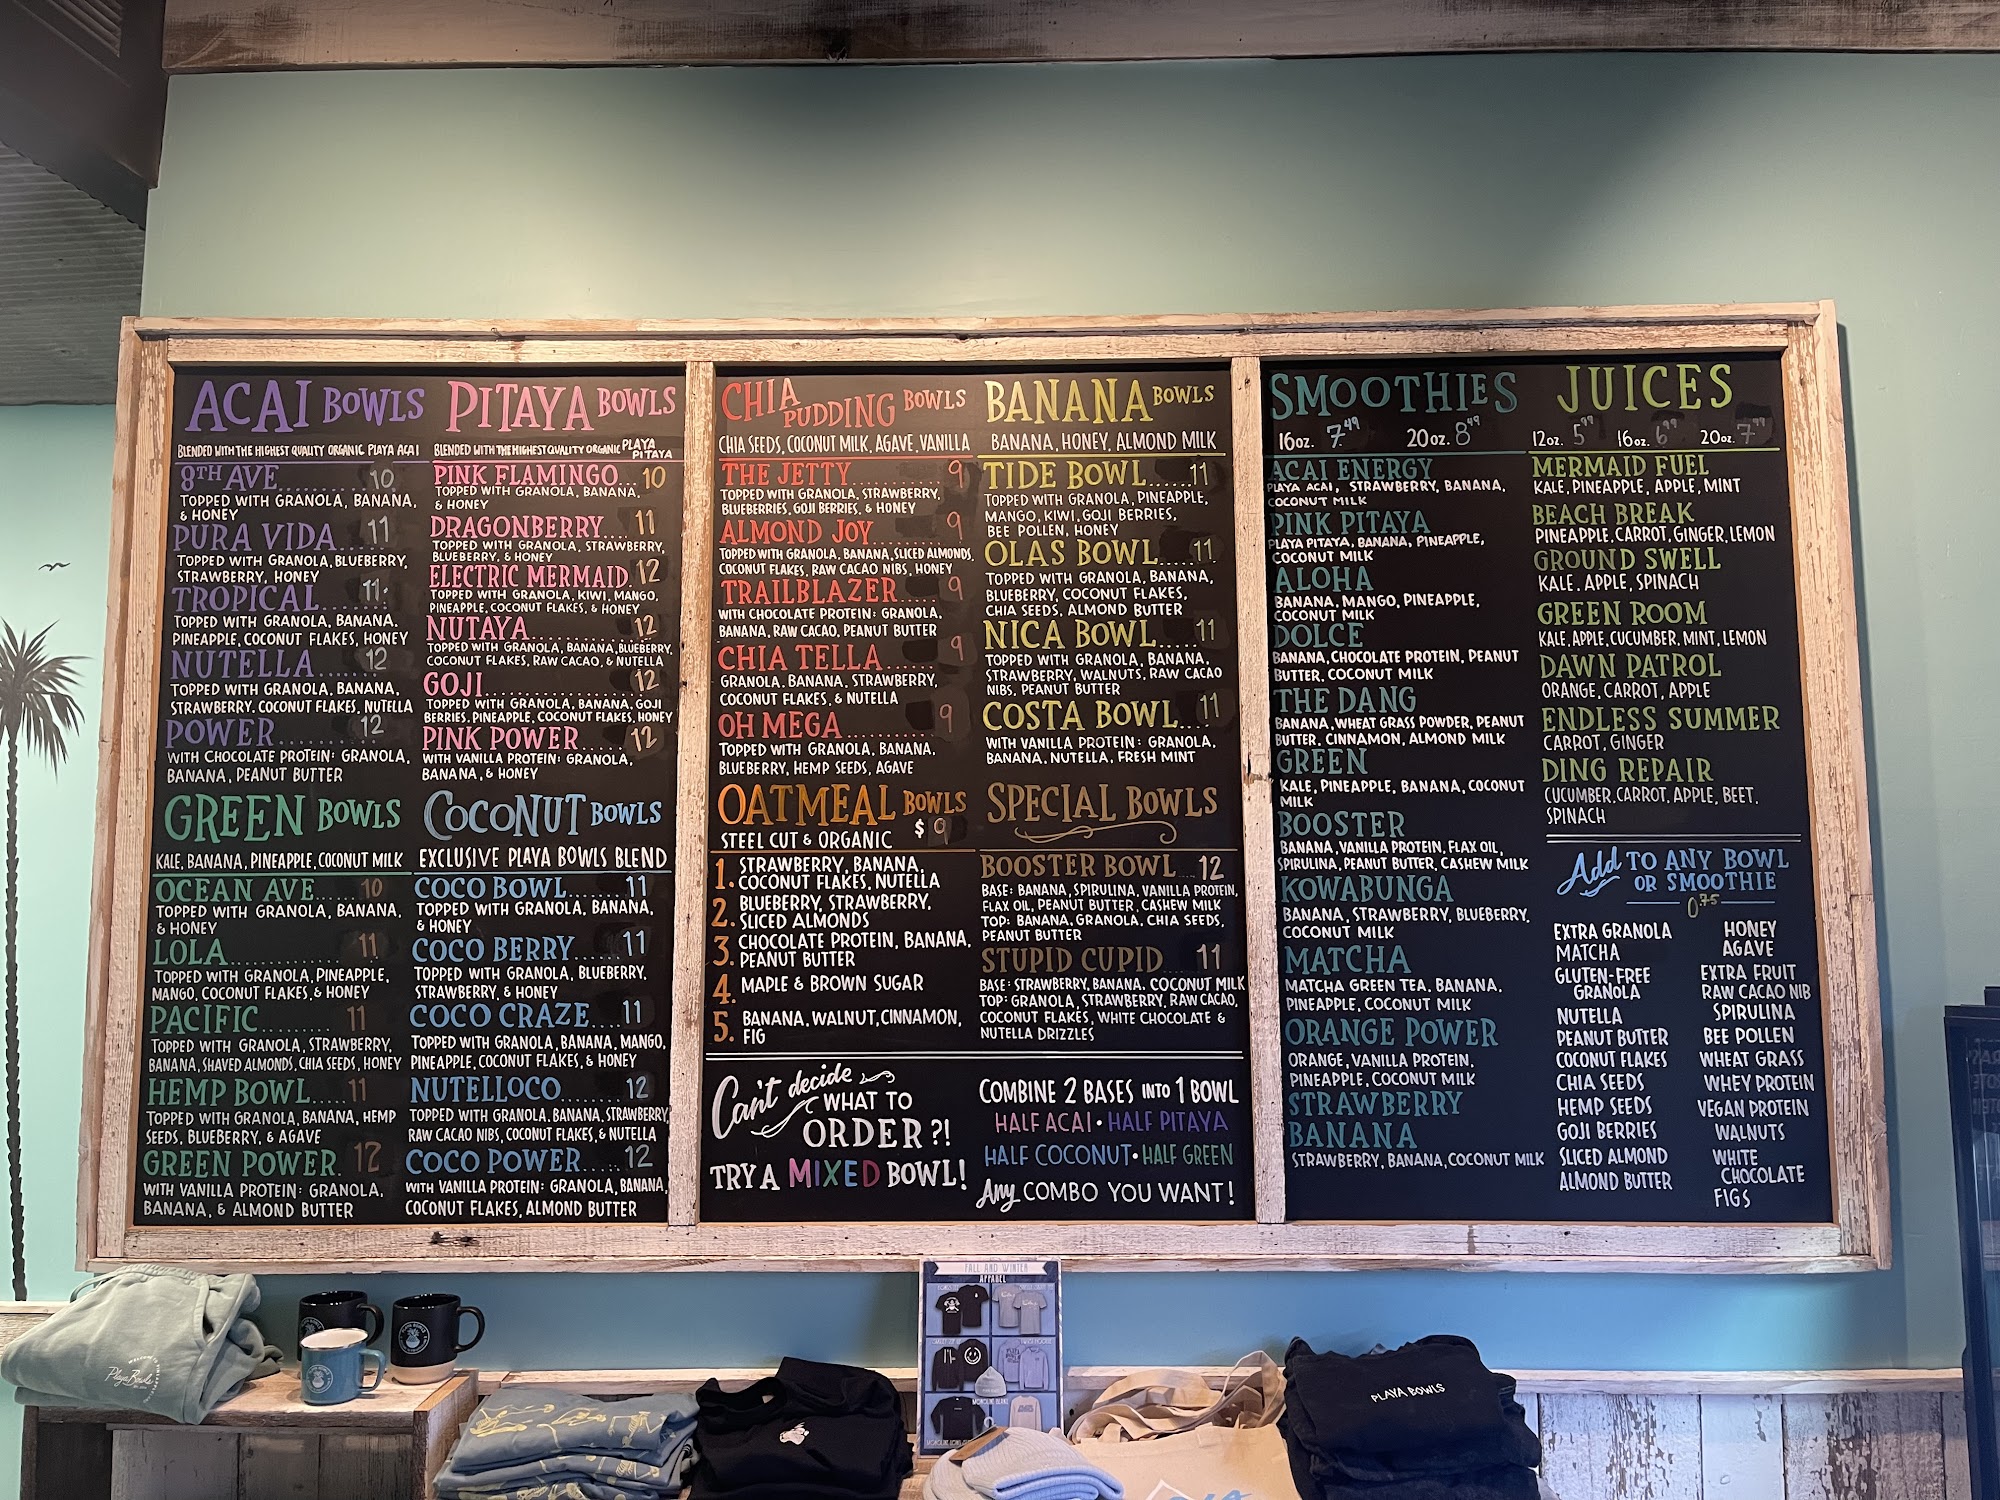 ACAI BOWLS
BLENDED WITH THE HIGHEST QUALITY ORGANIC PLAYA ACAI
8TH AVE..........10
TOPPED WITH GRANOLA, BANANA,
& HONEY
PURA VIDA...11
TOPPED WITH GRANOLA, BLUEBERRY,
STRAWBERRY, HONEY
TROPICAL......11
TOPPED WITH GRANOLA, BANANA,
PINEAPPLE, COCONUT FLAKES, HONEY
NUTELLA......12
TOPPED WITH GRANOLA, BANANA,
STRAWBERRY, COCONUT FLAKES, NUTELLA
POWER..........12
WITH CHOCOLATE PROTEIN: GRANOLA,
BANANA, PEANUT BUTTER
GREEN BOWLS
KALE, BANANA, PINEAPPLE, COCONUT MILK
OCEAN AVE.....10
TOPPED WITH GRANOLA, BANANA,
& HONEY
LOLA..............11
TOPPED WITH GRANOLA, PINEAPPLE,
MANGO, COCONUT FLAKES, & HONEY
PACIFIC.........11
TOPPED WITH GRANOLA, STRAWBERRY,
BANANA, SHAVED ALMONDS, CHIA SEEDS, HONEY
HEMP BOWL....11
TOPPED WITH GRANOLA, BANANA, HEMP
SEEDS, BLUEBERRY, & AGAVE
GREEN POWER.12
WITH VANILLA PROTEIN: GRANOLA,
BANANA, & ALMOND BUTTER
PITAYA BOWLS
BLENDED WITH THE HIGHEST QUALITY ORGANIC PLAYA PITAYA
PINK FLAMINGO...10
TOPPED WITH GRANOLA, BANANA,
& HONEY
DRAGONBERRY...11
TOPPED WITH GRANOLA, STRAWBERRY,
BLUEBERRY, & HONEY
ELECTRIC MERMAID.12
TOPPED WITH GRANOLA, KIWI, MANGO,
PINEAPPLE, COCONUT FLAKES, & HONEY
NUTAYA............12
TOPPED WITH GRANOLA, BANANA, BLUEBERRY,
COCONUT FLAKES, RAW CACAO, & NUTELLA
GOJI.................12
TOPPED WITH GRANOLA, BANANA, GOJI
BERRIES, PINEAPPLE, COCONUT FLAKES, HONEY
PINK POWER.....12
WITH VANILLA PROTEIN: GRANOLA,
BANANA, & HONEY
COCONUT BOWLS
EXCLUSIVE PLAYA BOWLS BLEND
COCO BOWL.......11
TOPPED WITH GRANOLA, BANANA,
& HONEY
COCO BERRY.....11
TOPPED WITH GRANOLA, BLUEBERRY,
STRAWBERRY, & HONEY
COCO CRAZE....11
TOPPED WITH GRANOLA, BANANA, MANGO,
PINEAPPLE, COCONUT FLAKES, & HONEY
NUTELLOCO.......12
TOPPED WITH GRANOLA, BANANA, STRAWBERRY,
RAW CACAO NIBS, COCONUT FLAKES, & NUTELLA
COCO POWER.....12
WITH VANILLA PROTEIN: GRANOLA, BANANA,
COCONUT FLAKES, ALMOND BUTTER
CHIA PUDDING BOWLS
CHIA SEEDS, COCONUT MILK, AGAVE, VANILLA
THE JETTY..........9
TOPPED WITH GRANOLA, STRAWBERRY,
BLUEBERRIES, GOJI BERRIES, & HONEY
ALMOND JOY 9
TOPPED WITH GRANOLA, BANANA, SLICED ALMONDS,
COCONUT FLAKES, RAW CACAO NIBS, HONEY
TRAILBLAZER.....9
WITH CHOCOLATE PROTEIN: GRANOLA,
BANANA, RAW CACAO, PEANUT BUTTER
CHIA TELLA.......9
GRANOLA, BANANA, STRAWBERRY,
COCONUT FLAKES, & NUTELLA
OH MEGA..........9
TOPPED WITH GRANOLA, BANANA,
BLUEBERRY, HEMP SEEDS, AGAVE
OATMEAL BOWLS
STEEL CUT & ORGANIC $9
1. STRAWBERRY, BANANA,
COCONUT FLAKES, NUTELLA
2. BLUEBERRY, STRAWBERRY,
SLICED ALMONDS
3. CHOCOLATE PROTEIN, BANANA,
PEANUT BUTTER
4. MAPLE & BROWN SUGAR
5. BANANA, WALNUT, CINNAMON,
FIG
BANANA BOWLS
BANANA, HONEY, ALMOND MILK
TIDE BOWL....11
TOPPED WITH GRANOLA, PINEAPPLE,
MANGO, KIWI, GOJI BERRIES,
BEE POLLEN, HONEY
OLAS BOWL...11
TOPPED WITH GRANOLA, BANANA,
BLUEBERRY, COCONUT FLAKES,
CHIA SEEDS, ALMOND BUTTER
NICA BOWL.....11
TOPPED WITH GRANOLA, BANANA,
STRAWBERRY, WALNUTS, RAW CACAO
NIBS, PEANUT BUTTER
COSTA BOWL...11
WITH VANILLA PROTEIN: GRANOLA,
BANANA, NUTELLA, FRESH MINT
SPECIAL BOWLS
BOOSTER BOWL...12
BASE: BANANA, SPIRULINA, VANILLA PROTEIN,
FLAX OIL, PEANUT BUTTER, CASHEW MILK
TOP: BANANA, GRANOLA, CHIA SEEDS,
PEANUT BUTTER
STUPID CUPID...11
BASE: STRAWBERRY, BANANA, COCONUT MILK
TOP: GRANOLA, STRAWBERRY, RAW CACAO,
COCONUT FLAKES, WHITE CHOCOLATE &
NUTELLA DRIZZLES
Can't decide
WHAT TO
ORDER?!
TRY A MIXED BOWL!
COMBINE 2 BASES INTO 1 BOWL
HALF ACAI • HALF PITAYA
HALF COCONUT • HALF GREEN
Any COMBO YOU WANT!
SMOOTHIES
16oz. 7.49 20oz. 8.49
ACAI ENERGY
PLAYA ACAI, STRAWBERRY, BANANA,
COCONUT MILK
PINK PITAYA
PLAYA PITAYA, BANANA, PINEAPPLE,
COCONUT MILK
ALOHA
BANANA, MANGO, PINEAPPLE,
COCONUT MILK
DOLCE
BANANA, CHOCOLATE PROTEIN, PEANUT
BUTTER, COCONUT MILK
THE DANG
BANANA, WHEAT GRASS POWDER, PEANUT
BUTTER, CINNAMON, ALMOND MILK
GREEN
KALE, PINEAPPLE, BANANA, COCONUT
MILK
BOOSTER
BANANA, VANILLA PROTEIN, FLAX OIL,
SPIRULINA, PEANUT BUTTER, CASHEW MILK
KOWABUNGA
BANANA, STRAWBERRY, BLUEBERRY,
COCONUT MILK
MATCHA
MATCHA GREEN TEA, BANANA,
PINEAPPLE, COCONUT MILK
ORANGE POWER
ORANGE, VANILLA PROTEIN,
PINEAPPLE, COCONUT MILK
STRAWBERRY
BANANA
STRAWBERRY, BANANA, COCONUT MILK
JUICES
12oz. 5.99 16oz. 6.99 20oz. 7.99
MERMAID FUEL
KALE, PINEAPPLE, APPLE, MINT
BEACH BREAK
PINEAPPLE, CARROT, GINGER, LEMON
GROUND SWELL
KALE, APPLE, SPINACH
GREEN ROOM
KALE, APPLE, CUCUMBER, MINT, LEMON
DAWN PATROL
ORANGE, CARROT, APPLE
ENDLESS SUMMER
CARROT, GINGER
DING REPAIR
CUCUMBER, CARROT, APPLE, BEET,
SPINACH
Add TO ANY BOWL
OR SMOOTHIE
0.75
EXTRA GRANOLA
MATCHA
GLUTEN-FREE
GRANOLA
NUTELLA
PEANUT BUTTER
COCONUT FLAKES
CHIA SEEDS
HEMP SEEDS
GOJI BERRIES
SLICED ALMOND
ALMOND BUTTER
HONEY
AGAVE
EXTRA FRUIT
RAW CACAO NIB
SPIRULINA
BEE POLLEN
WHEAT GRASS
WHEY PROTEIN
VEGAN PROTEIN
WALNUTS
WHITE
CHOCOLATE
FIGS
FALL AND WINTER
APPAREL
Playa Bowls
PLAYA BOWLS